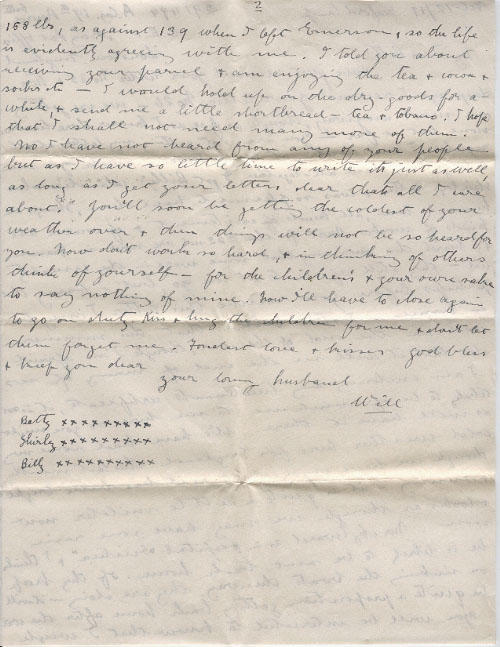 2
158 lbs, as against 139 when I left Emerson, so the life
is evidently agreeing with me. I told you about
receiving your parcel & am enjoying the tea & cocoa &
socks etc — I would hold up on the dry-goods for a-
while, & send me a little shortbread — tea & tobacco. I hope
that I shall not need many more of them.
No I have not heard from any of your people
but as I have so little time to write its just as well,
as long as I get your letters, dear thats all I care
about. You'll soon be getting the coldest of your
weather over & then things will not be so hard for
you. Now don't work so hard, & in thinking of others
think of yourself — for the children's & your own sake
to say nothing of mine. Now I'll have to close again
to go on duty, Kiss & hug the children for me & don't let
them forget me. Fondest love & kisses god bless
& keep you dear
your loving husband
Will
Betty xxxxxxxxx
Shirley xxxxxxxxx
Billy xxxxxxxxxx